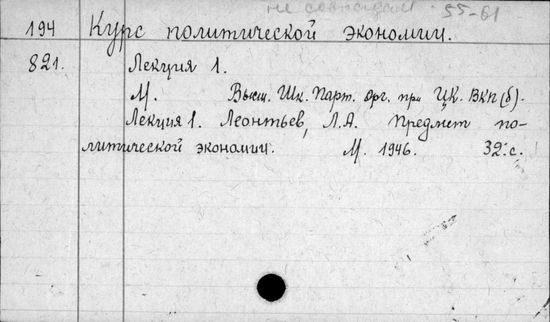 не совпадают 55-61
194 Курс политической экономии.
821. Лекция 1.
М. Высш. Шк. Парт. Орг. при ЦК. ВКП(б).
Лекция 1. Леонтьев, Л.А. Предмет по-
литической экономии. М. 1946. 32.с.